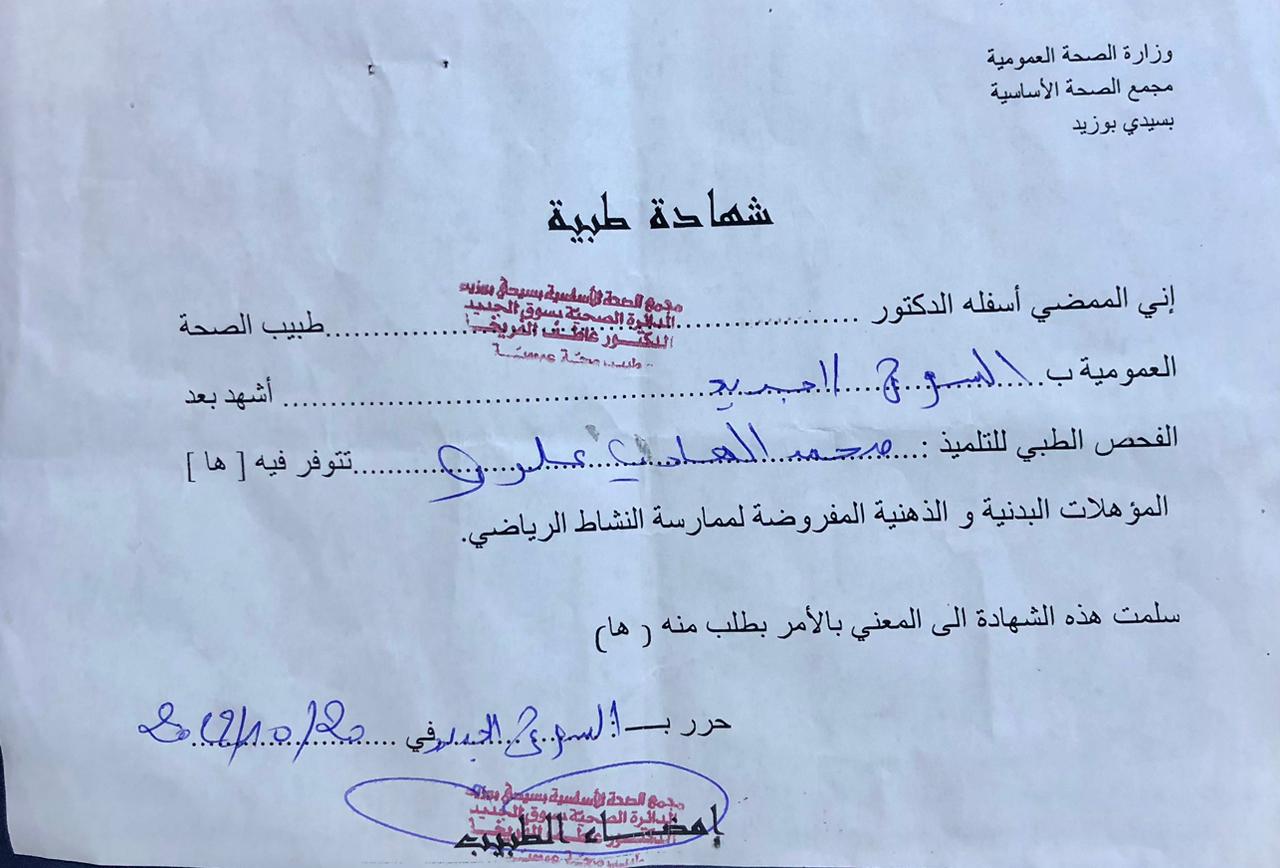 وزارة الصحة العمومية
مجمع الصحة الأساسية
بسيدي بوزيد
شهادة طبية
مجمع الصحة الأساسية بسيدي بوزيد
الدائرة الصحية بسوق الجديد
الدكتور
طبيب صحة عمومية
إني الممضي أسفله الدكتور ........ طبيب الصحة
العمومية ب.... السوق الجديد ........ أشهد بعد
الفحص الطبي للتلميذ : محمد الهادي ........ تتوفر فيه [ ها ]
المؤهلات البدنية و الذهنية المفروضة لممارسة النشاط الرياضي.
سلمت هذه الشهادة الى المعني بالأمر بطلب منه ( ها)
حرر بـ السوق الجديد في
مجمع الصحة الأساسية بسيدي بوزيد
الدائرة الصحية بسوق الجديد
إمضاء الطبيب